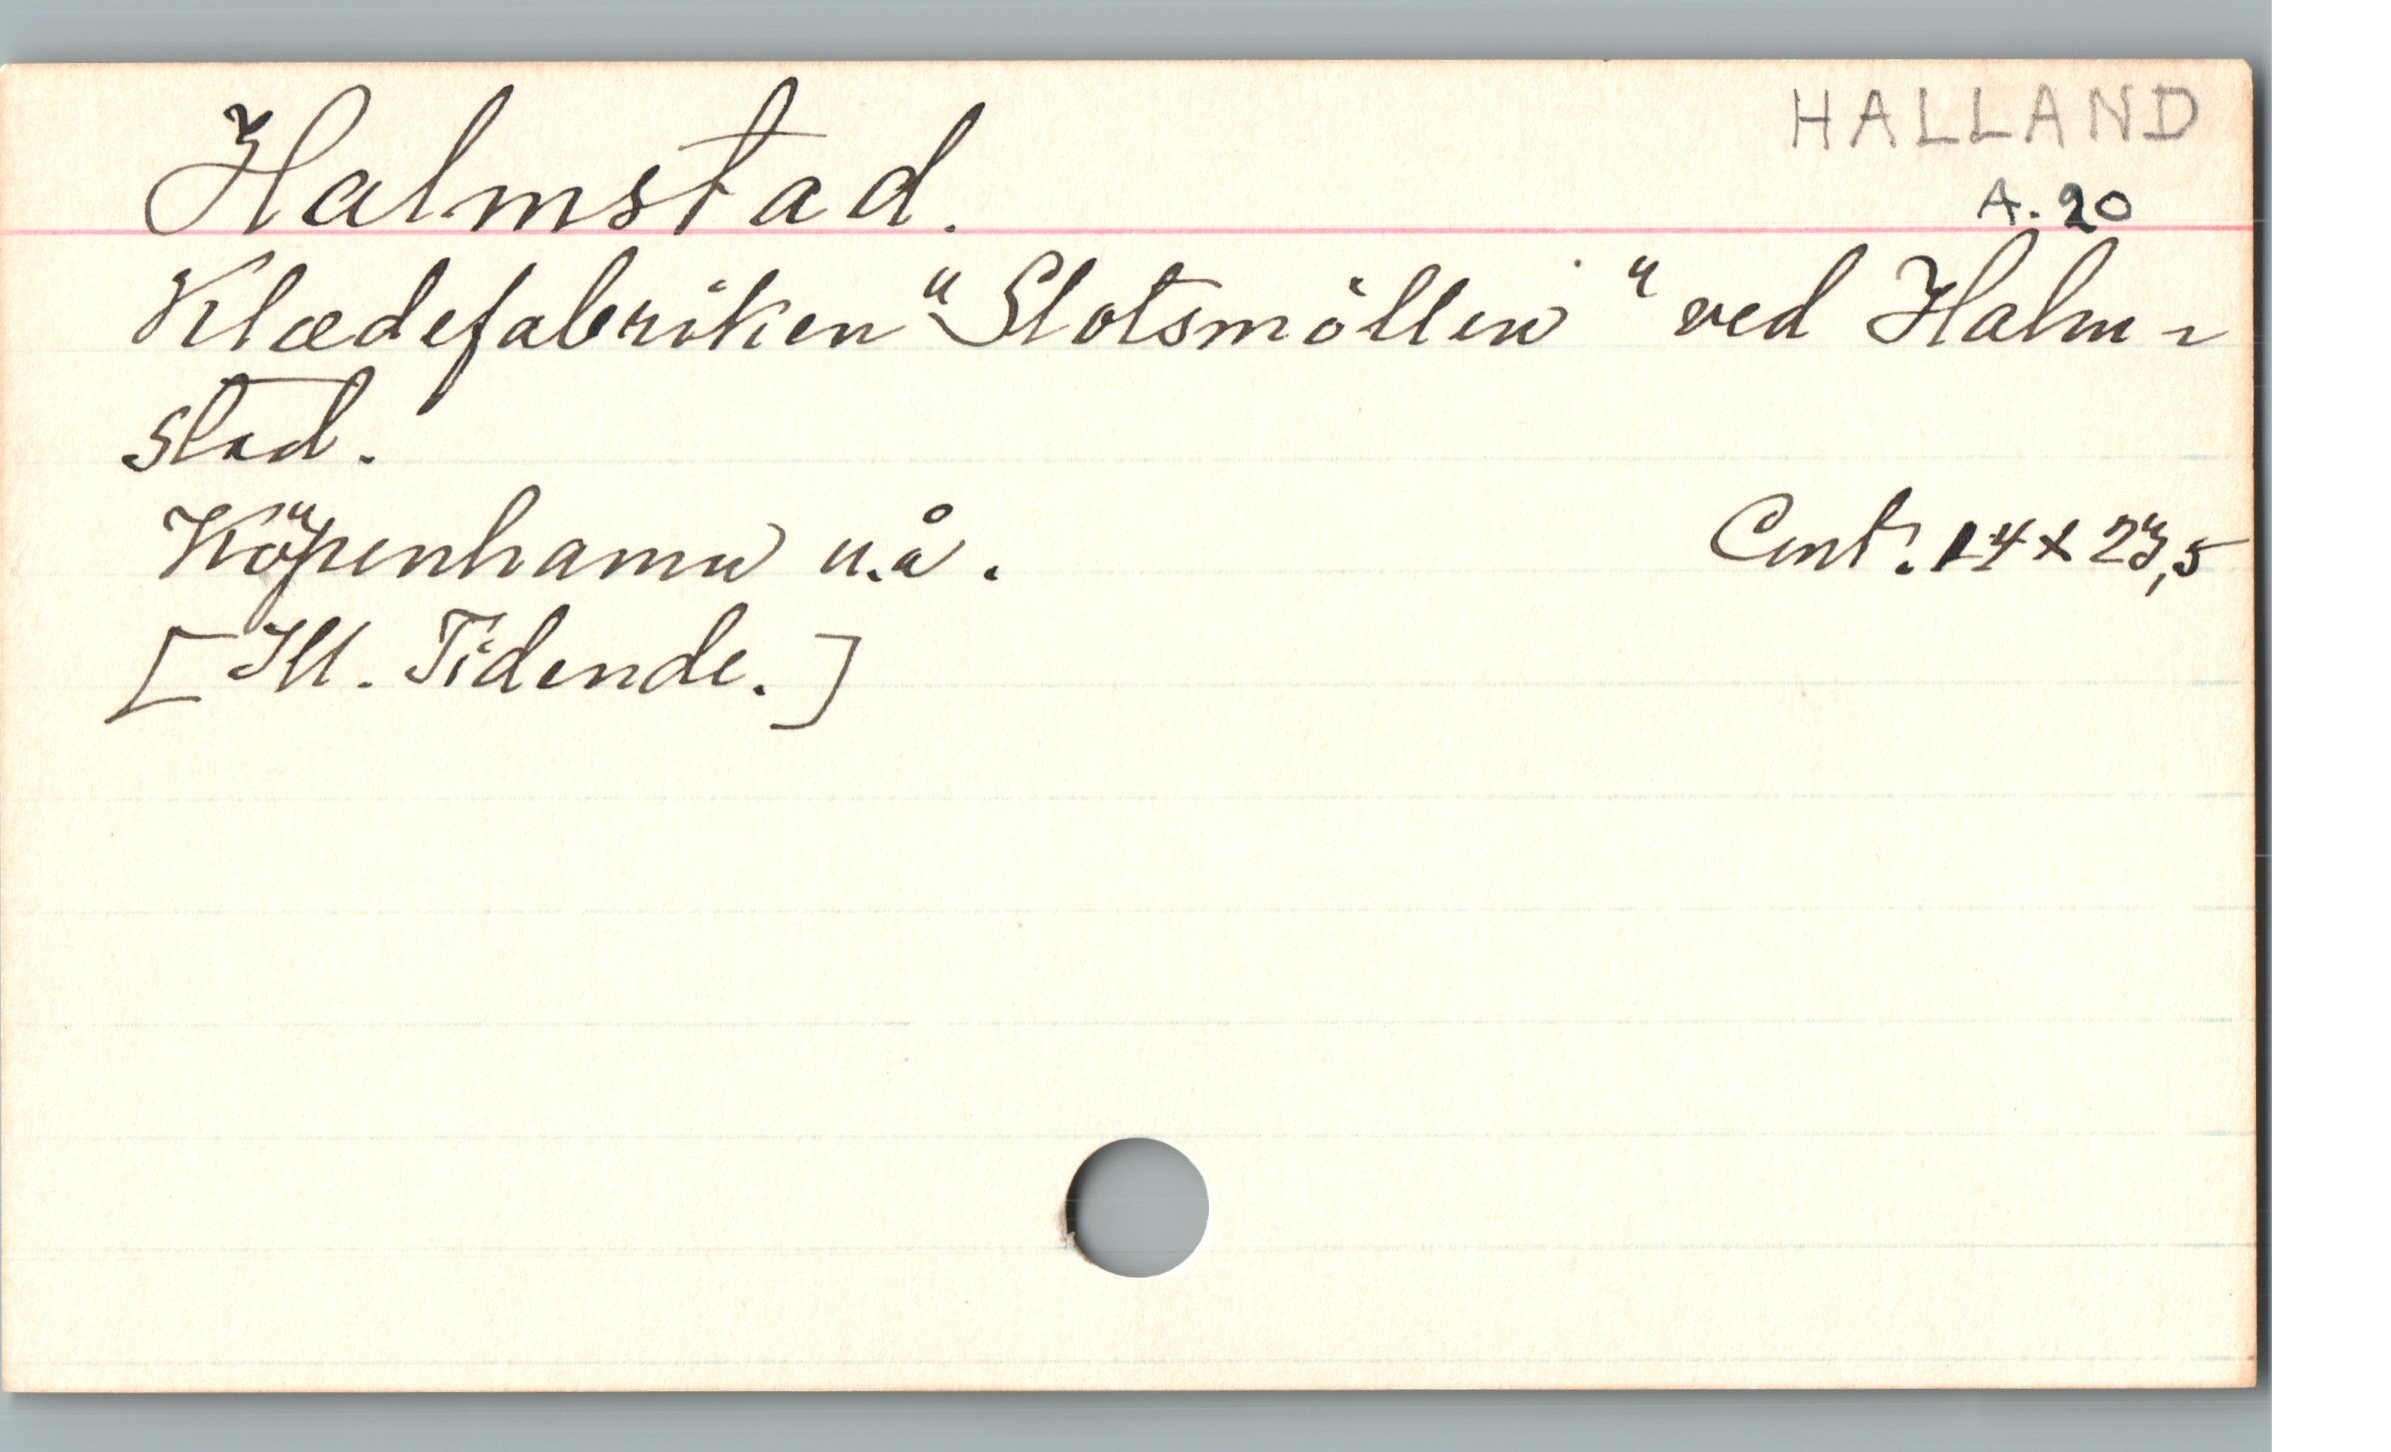 HALLAND
Halmstad.
A. 20
Klædefabriken "Slotsmöllen" ved Halm-
stad.
Köpenhamn u.å.
Cent. 14 x 23,5
[Ill. Tidende.]